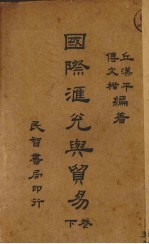 丘漢平
傅文楷
編著
國際滙兌與貿易
下卷
民智書局印行